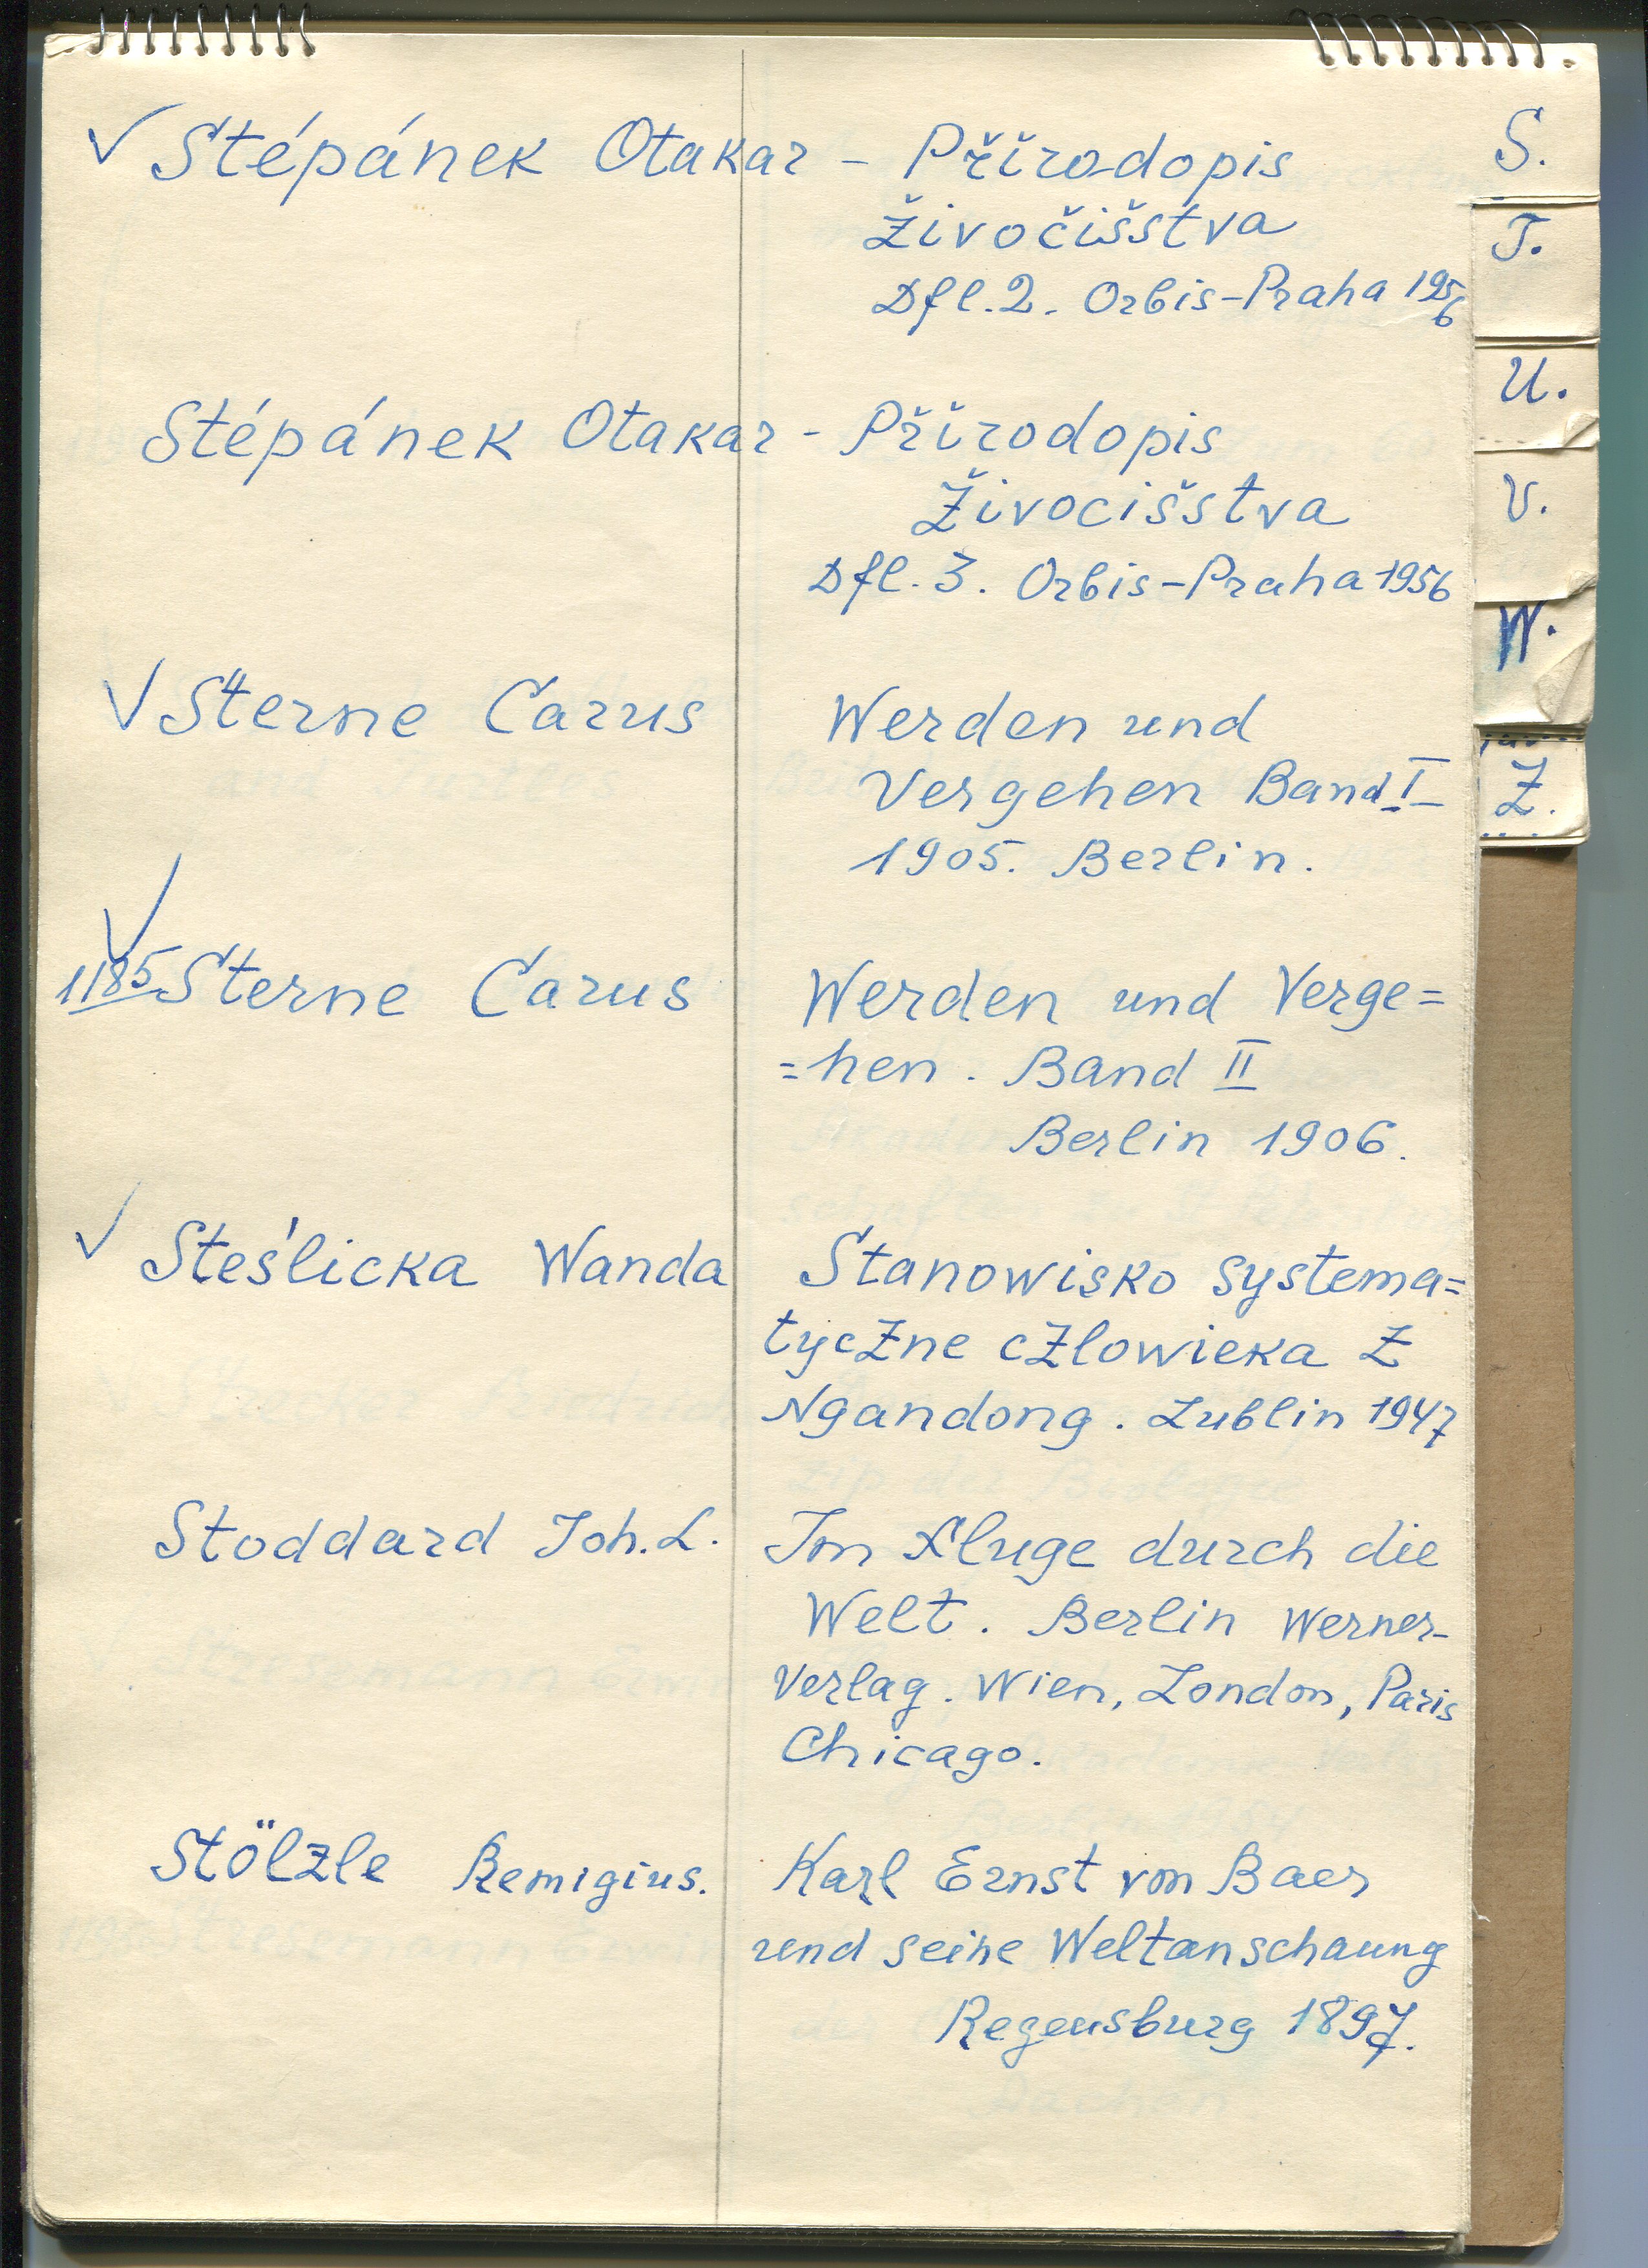 ✓ Stépánek Otakar - Přírodopis
Živočišstva
Dfl. 2. Orbis-Praha 1956
Stépánek Otakar - Přírodopis
Živocišstva
Dfl. 3. Orbis-Praha 1956
✓ Sterne Carus Werden und
Vergehen Band I
1905. Berlin.
✓
1185 Sterne Carus Werden und Verge=
=hen. Band II
Berlin 1906.
✓ Steślicka Wanda Stanowisko systema=
tyczne człowieka z
Ngandong. Lublin 1947
Stoddard Joh. L. Im Fluge durch die
Welt. Berlin Werner-
Verlag. Wien, London, Paris
Chicago.
Stölzle Remigius. Karl Ernst von Baer
und seine Weltanschaung
Regensburg 1897.
S.
T.
U.
V.
W.
Z.